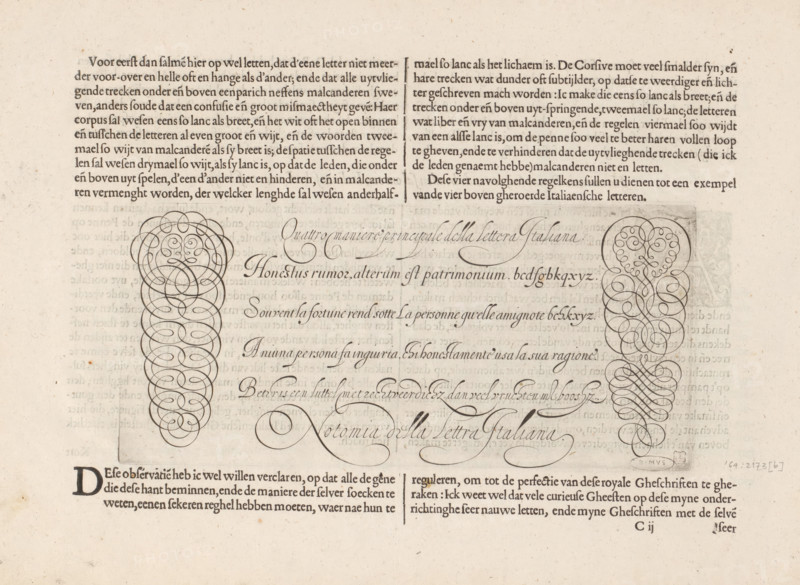 Voor eerst dan salmē hier op wel letten, dat d'eene letter niet meer-
der voor-over en helle oft en hange als d'ander; ende dat alle uytvlie-
gende trecken onder eñ boven eenparich neffens malcanderen swe-
ven, anders soude dat een confusie eñ groot mismaectheyt gevē: Haer
corpus sal wesen eens so lanc als breet, eñ het wit oft het open binnen
eñ tusschen de letteren al even groot eñ wijt, eñ de woorden twee-
mael so wijt van malcanderē als sy breet is; de spatie tusschen de rege-
len sal wesen drymael so wijt, als sy lanc is, op dat de leden, die onder
eñ boven uyt spelen, d'een d'ander niet en hinderen, eñ in malcande-
ren vermenght worden, der welcker lenghde sal wesen anderhalf-
mael so lanc als het lichaem is. De Corsive moet veel smalder syn, eñ
hare trecken wat dunder oft subtijlder, op datse te weerdiger eñ lich-
ter geschreven mach worden: Ic make die eens so lanc als breet; eñ de
trecken onder eñ boven uyt-springende, tweemael so lanc; de letteren
wat liber eñ vry van malcanderen, eñ de regelen viermael soo wijdt
van een alsse lanc is, om de penne soo veel te beter haren vollen loop
te gheven, ende te verhinderen dat de uytvlieghende trecken ( die ick
de leden genaemt hebbe) malcanderen niet en letten.
Dese vier navolghende regelkens sullen u dienen tot een exempel
vande vier boven gheroerde Italiaensche letteren.
Quattro maniere principale della lettera Italiana
Honestus rumor, alterum est patrimonium. bcdfgbkqxyz.
Souvent la fortune rend sotte La personne qu'elle amignote bchkxyz.
A niuna persona fa ingiuria, Chi honestamente usa la sua ragione.
Beter is een luttel met rechtveerdicheyt, dan veel vruchten met boosheyt.
Notomia della lettra Italiana
DEse observatiē heb ic wel willen verclaren, op dat alle de gēne
die dese hant beminnen, ende de maniere der selver soecken te
weten, eenen sekeren reghel hebben moeten, waer nae hun te
reguleren, om tot de perfectie van dese royale Gheschriften te ghe-
raken: Ick weet wel dat vele curieuse Gheesten op dese myne onder-
richtinghe seer nauwe letten, ende myne Gheschriften met de selvē
C ij
seer